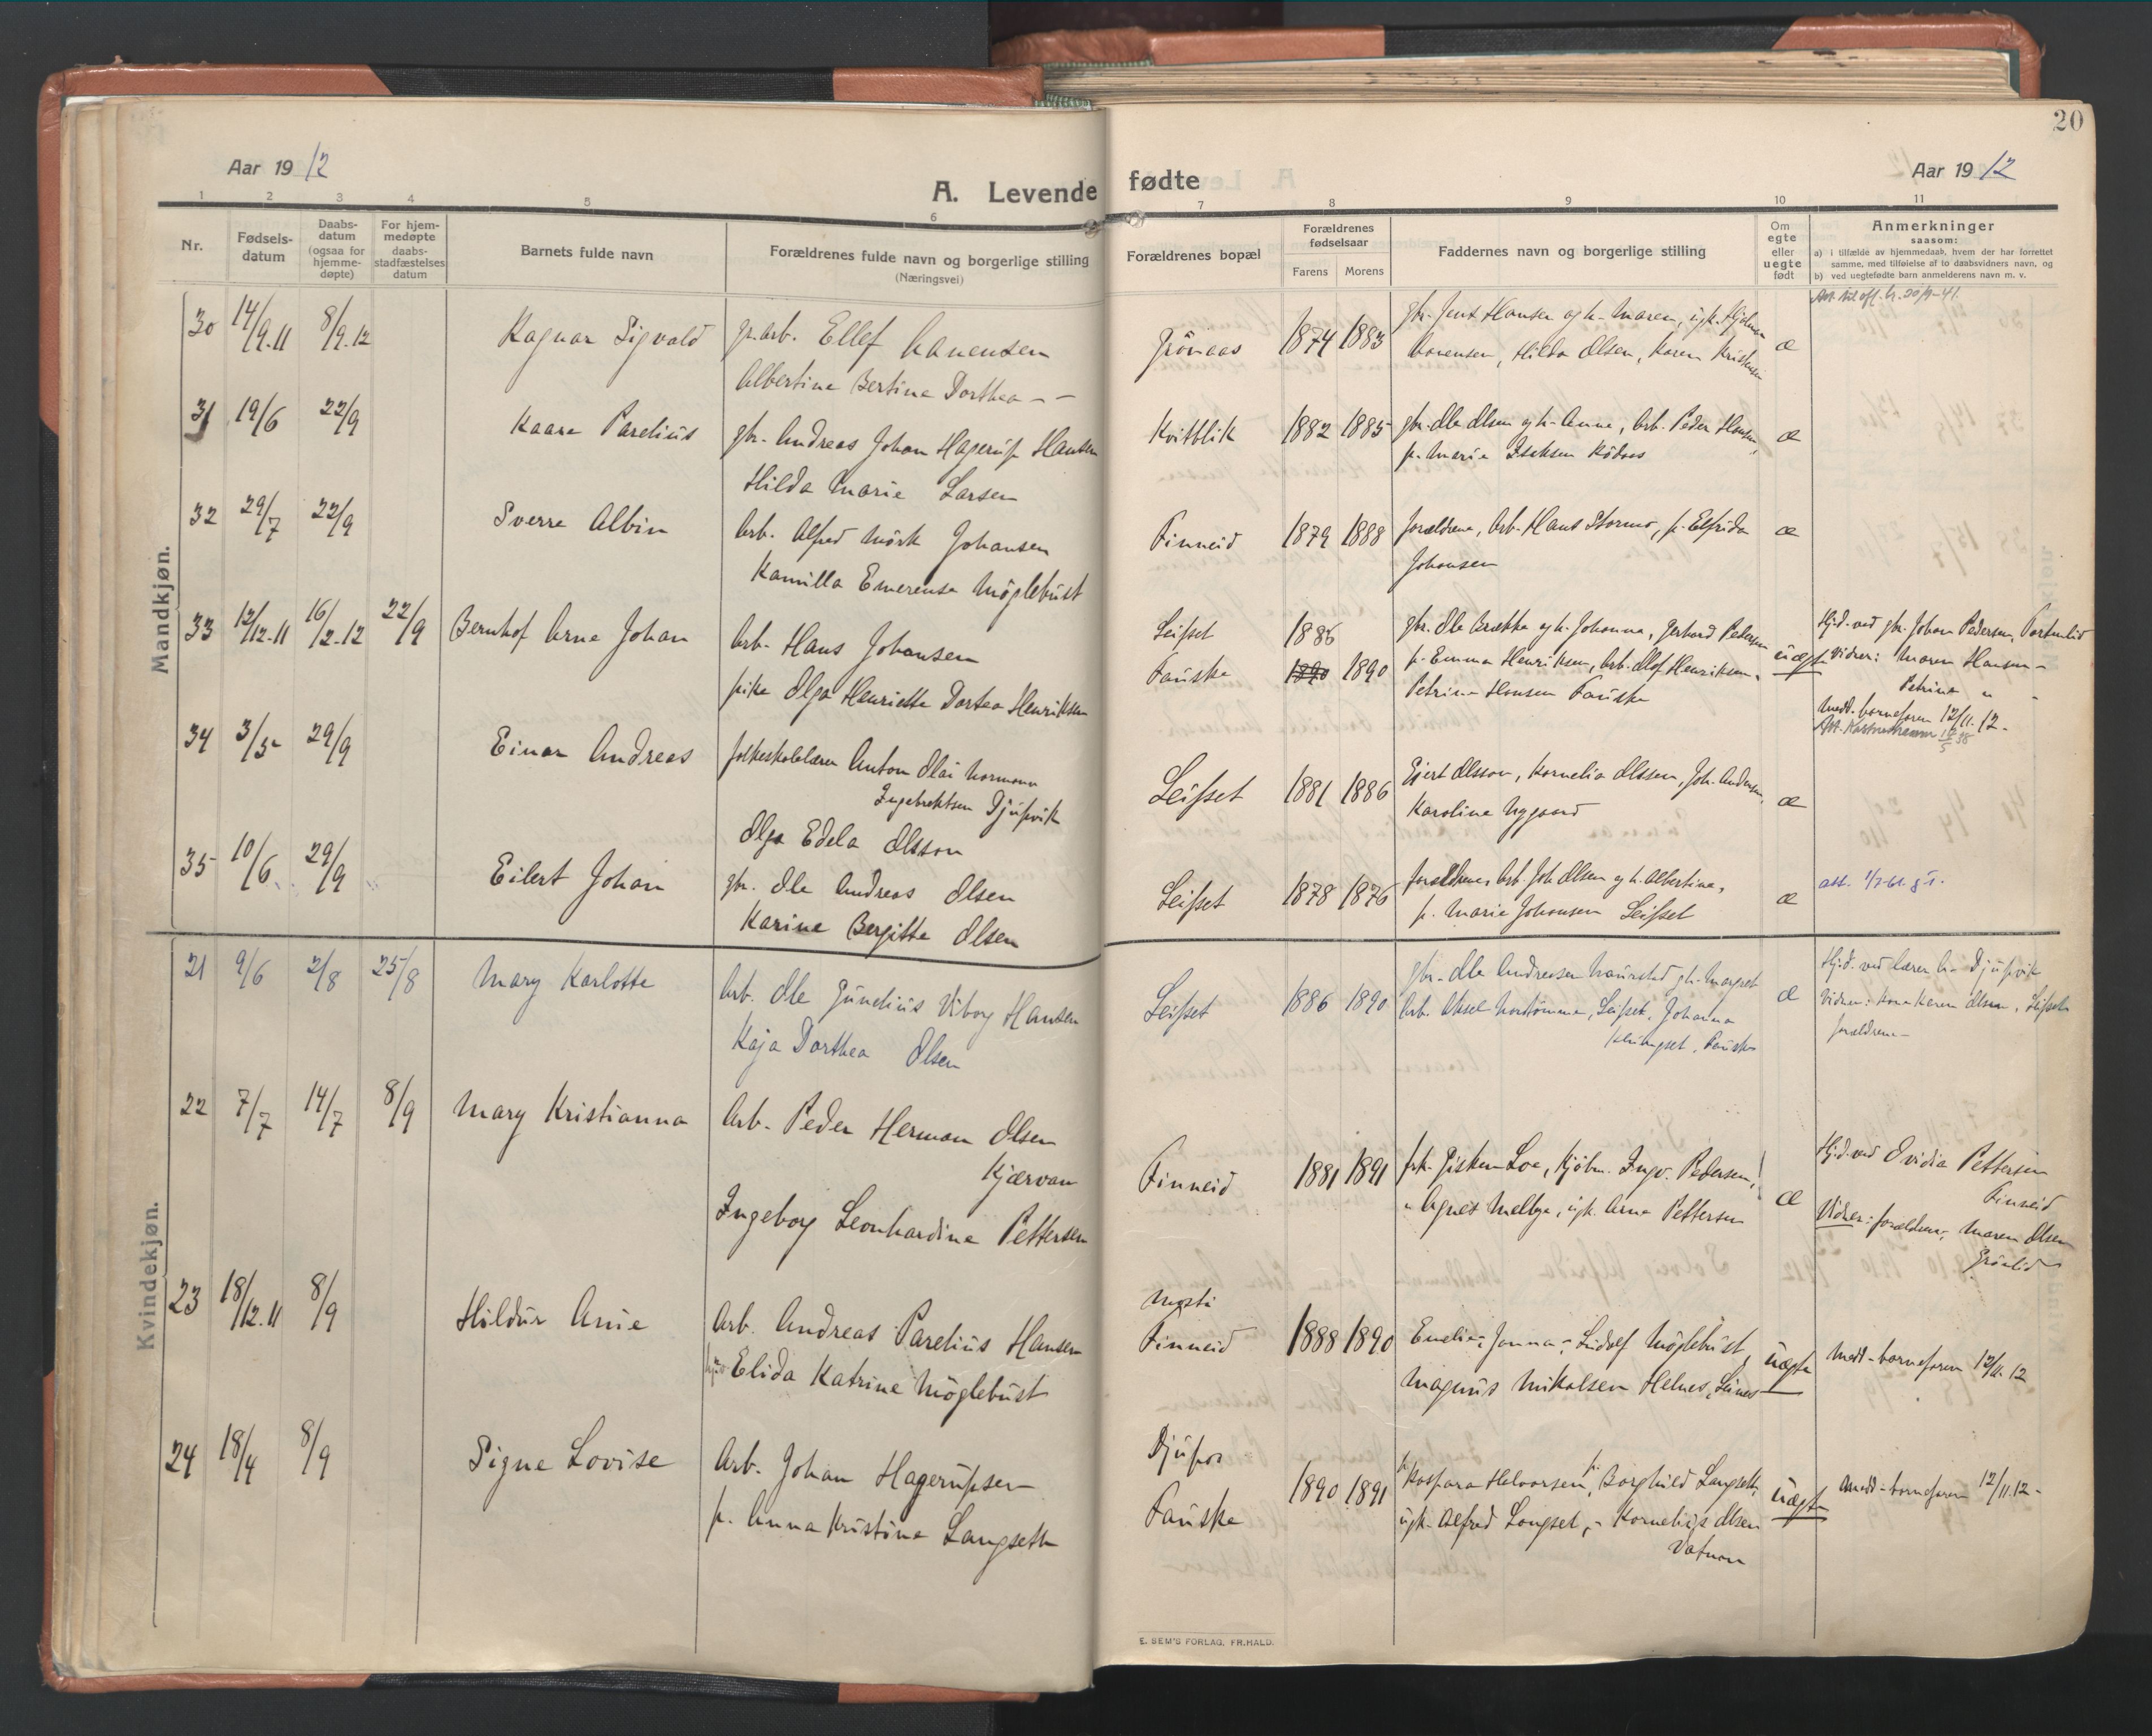 20
Aar 1912
A. Levende fødte
Aar 1912
1 2 3 4 5 6 7 8 9 10 11
Nr.
Fødsels-
datum
Daabs-
datum
(ogsaa for
hjemme-
døpte)
For hjem-
medøpte
daabs-
stadfæstelses
datum
Barnets fulde navn
Forældrenes fulde navn og borgerlige stilling
(Næringsvei)
Forældrenes bopæl
Forældrenes
fødselsaar
Farens Morens
Faddernes navn og borgerlige stilling
Om
egte
eller
uegte
født
Anmerkninger
saasom:
a) i tilfælde av hjemmedaab, hvem der har forrettet
samme, med tilføielse af to daabsvidners navn, og
b) ved uegtefødte barn anmelderens navn m. v.
Mandkjøn.
30 14/9.11 8/9.12 Ragnar Sigvald
Ellef
Albertine Bertine Dorthea - -
Grönaas 1874 1883
gbr. Jens Hansen og h. Maren, ugk. Hjalmar
Hilda Olsen, Karen Kristensen
æ
31 19/6 22/9 Kaare Parelius
gbr. Andreas Johan Hagerup Hansen
Hilda Marie Larsen
Kvitblik 1882 1885
gbr. Ole Olsen og h. Anne, Arb. Peder Hansen,
p. Marie Iseksen Rödaas
æ
32 29/7 22/9 Sverre Albin
Arb. Alfred Mörk Johansen
Kamilla Emerense Möglebust
Finneid 1879 1888
forældrene, Arb. Hans Stormo, p. Elfrida
Johansen
æ
33 12/12.11 16/2.12 22/9 Bernhof Arne Johan
Arb. Hans Johansen
pike Olga Henriette Dortea Henriksen
Leifset 1886
Fauske 1890 1890
gbr. Ole Brække og h. Johanna, Gerhard Pedersen
p. Emma Henriksen, Arb. Olof Henriksen,
Petrine Hansen Fauske
uægte
Hjd. ved gbr. Johan Pedersen,
Vidner: Maren Hansen -
Petrine " -
Medd. borneforen 12/11.12.
34 3/5 29/9 Einar Andreas
folkeskolelærer Anton Olai Normann
Ingebrektsen Djupvik
Olga Edela Olsson
Leifset 1881 1886
Ejert Olsson, Kornelia Olssen, Joh. Andersen,
Karoline Nygaard
æ
35 10/6 29/9 Eilert Johan
gbr. Ole Andreas Olsen
Karine Bergitte Olsen
Leifset 1878 1876
forældrene, Arb. Joh Olsen og h. Albertine,
p. Marie Johansen Leifset
æ
Kvindekjøn.
21 9/6 2/8 25/8 Mary Karlotte
Arb. Ole Gunelius Viborg Hansen
Kaja Dorthea Olsen
Leifset 1886 1890
gbr. Ole Andreasen
Arb. Aksel Leifset, Johanna
Klungset, Fauske
æ
Hjd. ved lærer Djupvik
Vidner: kone Karen Olsen, Leifset
forældrene -
22 7/7 14/7 8/9 Mary Kristianna
Arb. Peder Herman Olsen
Kjærvan
Ingeborg Leonhardine Pettersen
Finneid 1881 1891
frk. Gisken Loe, Kjöbm. Ingv. Pedersen,
" Agnes Melbye, ugk. Arne Pettersen
æ
Hjd. ved Ovidia Pettersen
Finneid
Vidner: forældrene, Maren Olsen
Grönlid
23 18/12.11 8/9 Hildur Anie
Arb. Andreas Parelius Hansen
Elida Katrine Möglebust
Finneid 1888 1890
Emelie, Janna, Ludolf Möglebust,
Magnus Mikalsen Helnes, Leines
uægte
Medd. borneforen 12/11.12
24 18/4 8/9 Signe Lovise
Arb. Johan Hagerupsen
p. Anna Kristine Langseth
Djupos
Fauske 1890 1891
p. Kaspara Halvorsen, p. Borghild Langseth,
ugk. Alfred Langset, - Kornelius Olsen
Vatnan
uægte
Medd. borneforen 12/11.12 -
E. SEM'S FORLAG. FR.HALD.